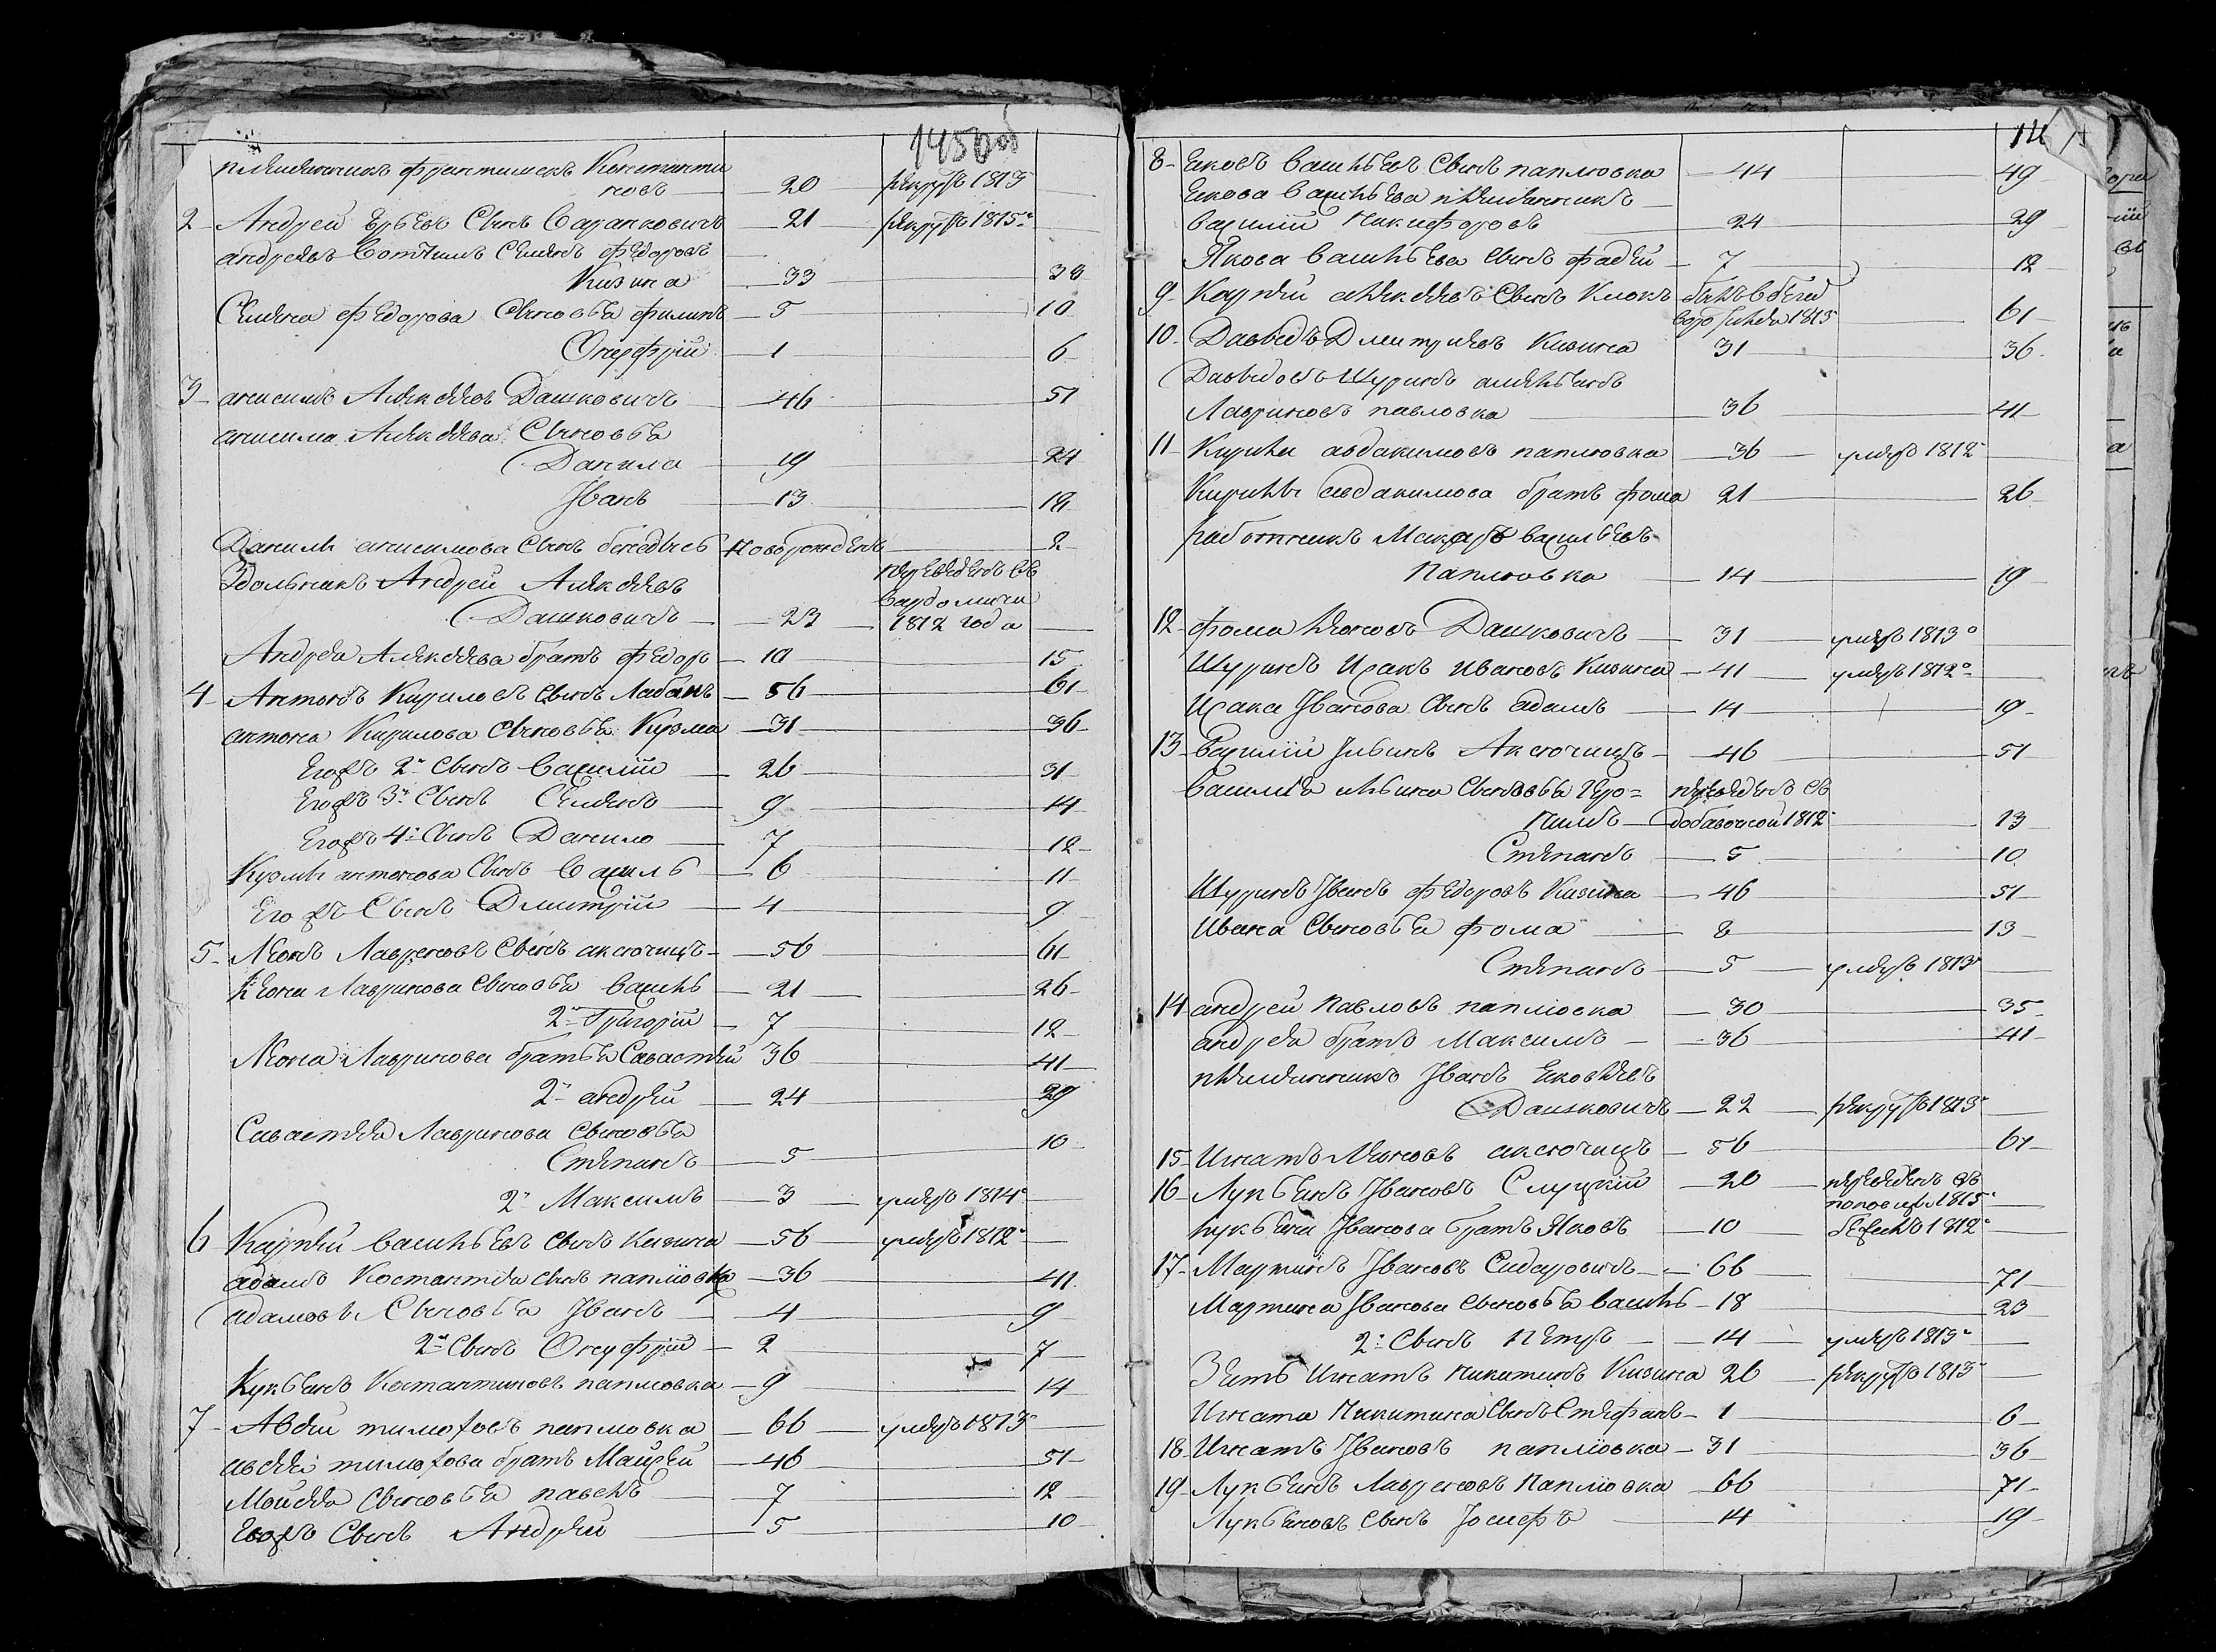 1450об
племянникъ францишекъ Константи
новъ 20 рекрутъ 1813
2 Андрей Юрьевъ Сынъ Саранковичъ 21 рекрутъ 1815
андреевъ Вотчимъ Семенъ федоровъ
Кизина 33 38
Семена федорова Сыновья филипъ 5 10
Онуфрій 1 6
3 анисимъ Алексеевъ Дашковичъ 46 51
анисима Алексеева Сыновья
Данила 19 24
Иванъ 13 18
Данилы анисимова Сынъ бенедысь Новорожденъ 2
Здольникъ Андрей Алексеевъ переведенъ въ
Дашковичъ 23 1812 года
Андрея Алексеева братъ федоръ 10 15
4 Антонъ Кириловъ Сынъ Лабанъ 56 61
антона Кирилова Сыновья Кузма 31 36
Егожъ 2й Сынъ Василій 26 31
Егожъ 3й Сынъ Семенъ 9 14
Егожъ 4й Сынъ Данило 7 12
Кузмы антонова Сынъ Василь 6 11
Егожъ Сынъ Дмитрій 4 9
5 Леонъ Лавреновъ Сынъ аксючицъ 56 61
Леона Лавринова Сыновья василь 21 26
2й Григорій 7 12
Леона Лавринова братья Савастей 36 41
2й андрей 24 29
Савастея Лавринова Сыновья
Степанъ 5 10
2й Максимъ 3 умеръ 1814
6 Карней васильевъ Сынъ Кизина 56 умеръ 1812
адамъ Костантея сынъ паплювка 36 41
адамовы Сыновья Иванъ 4 9
2й Сынъ Онуфрій 2 7
Лукьянъ Костантиновъ паплювка 9 14
7 Авдей тимоховъ паплювка 66 умеръ 1813
авдея тимохова братъ Майсей 46 51
Мойсея Сыновья павелъ 7 12
Егожъ Сынъ Андрей 5 10
8 Яковъ васильевъ Сынъ паплювка 44 49
Якова васильева племянникъ
василій никифоровъ 24 29
Якова васильева Сынъ фадей 7 12
9 Карней алексеевъ Сынъ Клокъ былъ в бегах
1815 61
10 Давыдъ Дмитриевъ Кизина 31 36
Давыдовъ Шуринъ
Лавриновъ павловка 36 41
11 Кирила авдакимовъ паплювка 36 умеръ 1812
Кирилы авдакимова братъ фома 21 26
работникъ Макаръ васильевъ
паплювка 14 19
12 фома Леоновъ Дашковичъ 31 умеръ 1813
Шуринъ Исакъ Ивановъ Кизина 41 умеръ 1812
Исака Иванова Сынъ адамъ 14 19
13 василій Ильинъ Аксючицъ 46 51
василія ильина Сыновья Геро= переведенъ съ
нимъ 1812 13
Степанъ 5 10
Шуринъ Иванъ федоровъ Кизина 46 51
Ивана Сыновья фома 8 13
Степанъ 5 умеръ 1813
14 андрей павловъ паплювка 30 35
андрея братъ Максимъ 36 41
племянникъ Иванъ Яковлевъ
Дашковичъ 22 рекрутъ 1813
15 Игнатъ Леоновъ аксючицъ 56 61
16 Лукьянъ Ивановъ Слуцкій 20 переведенъ въ
1815
лукьяна Иванова братъ Яковъ 10 1812
17 Мартинъ Ивановъ Сидаровичъ 66 71
Мартина Иванова Сыновья василь 18 23
2й Сынъ петръ 14 умеръ 1813
Зять Игнатъ никитинъ Кизина 26 рекрутъ 1813
Игната никитина Сынъ Стефанъ 1 6
18 Игнатъ Ивановъ паплювка 31 36
19 Лукьянъ Лавреновъ паплювка 66 71
Лукьяновъ сынъ Иосифъ 14 19